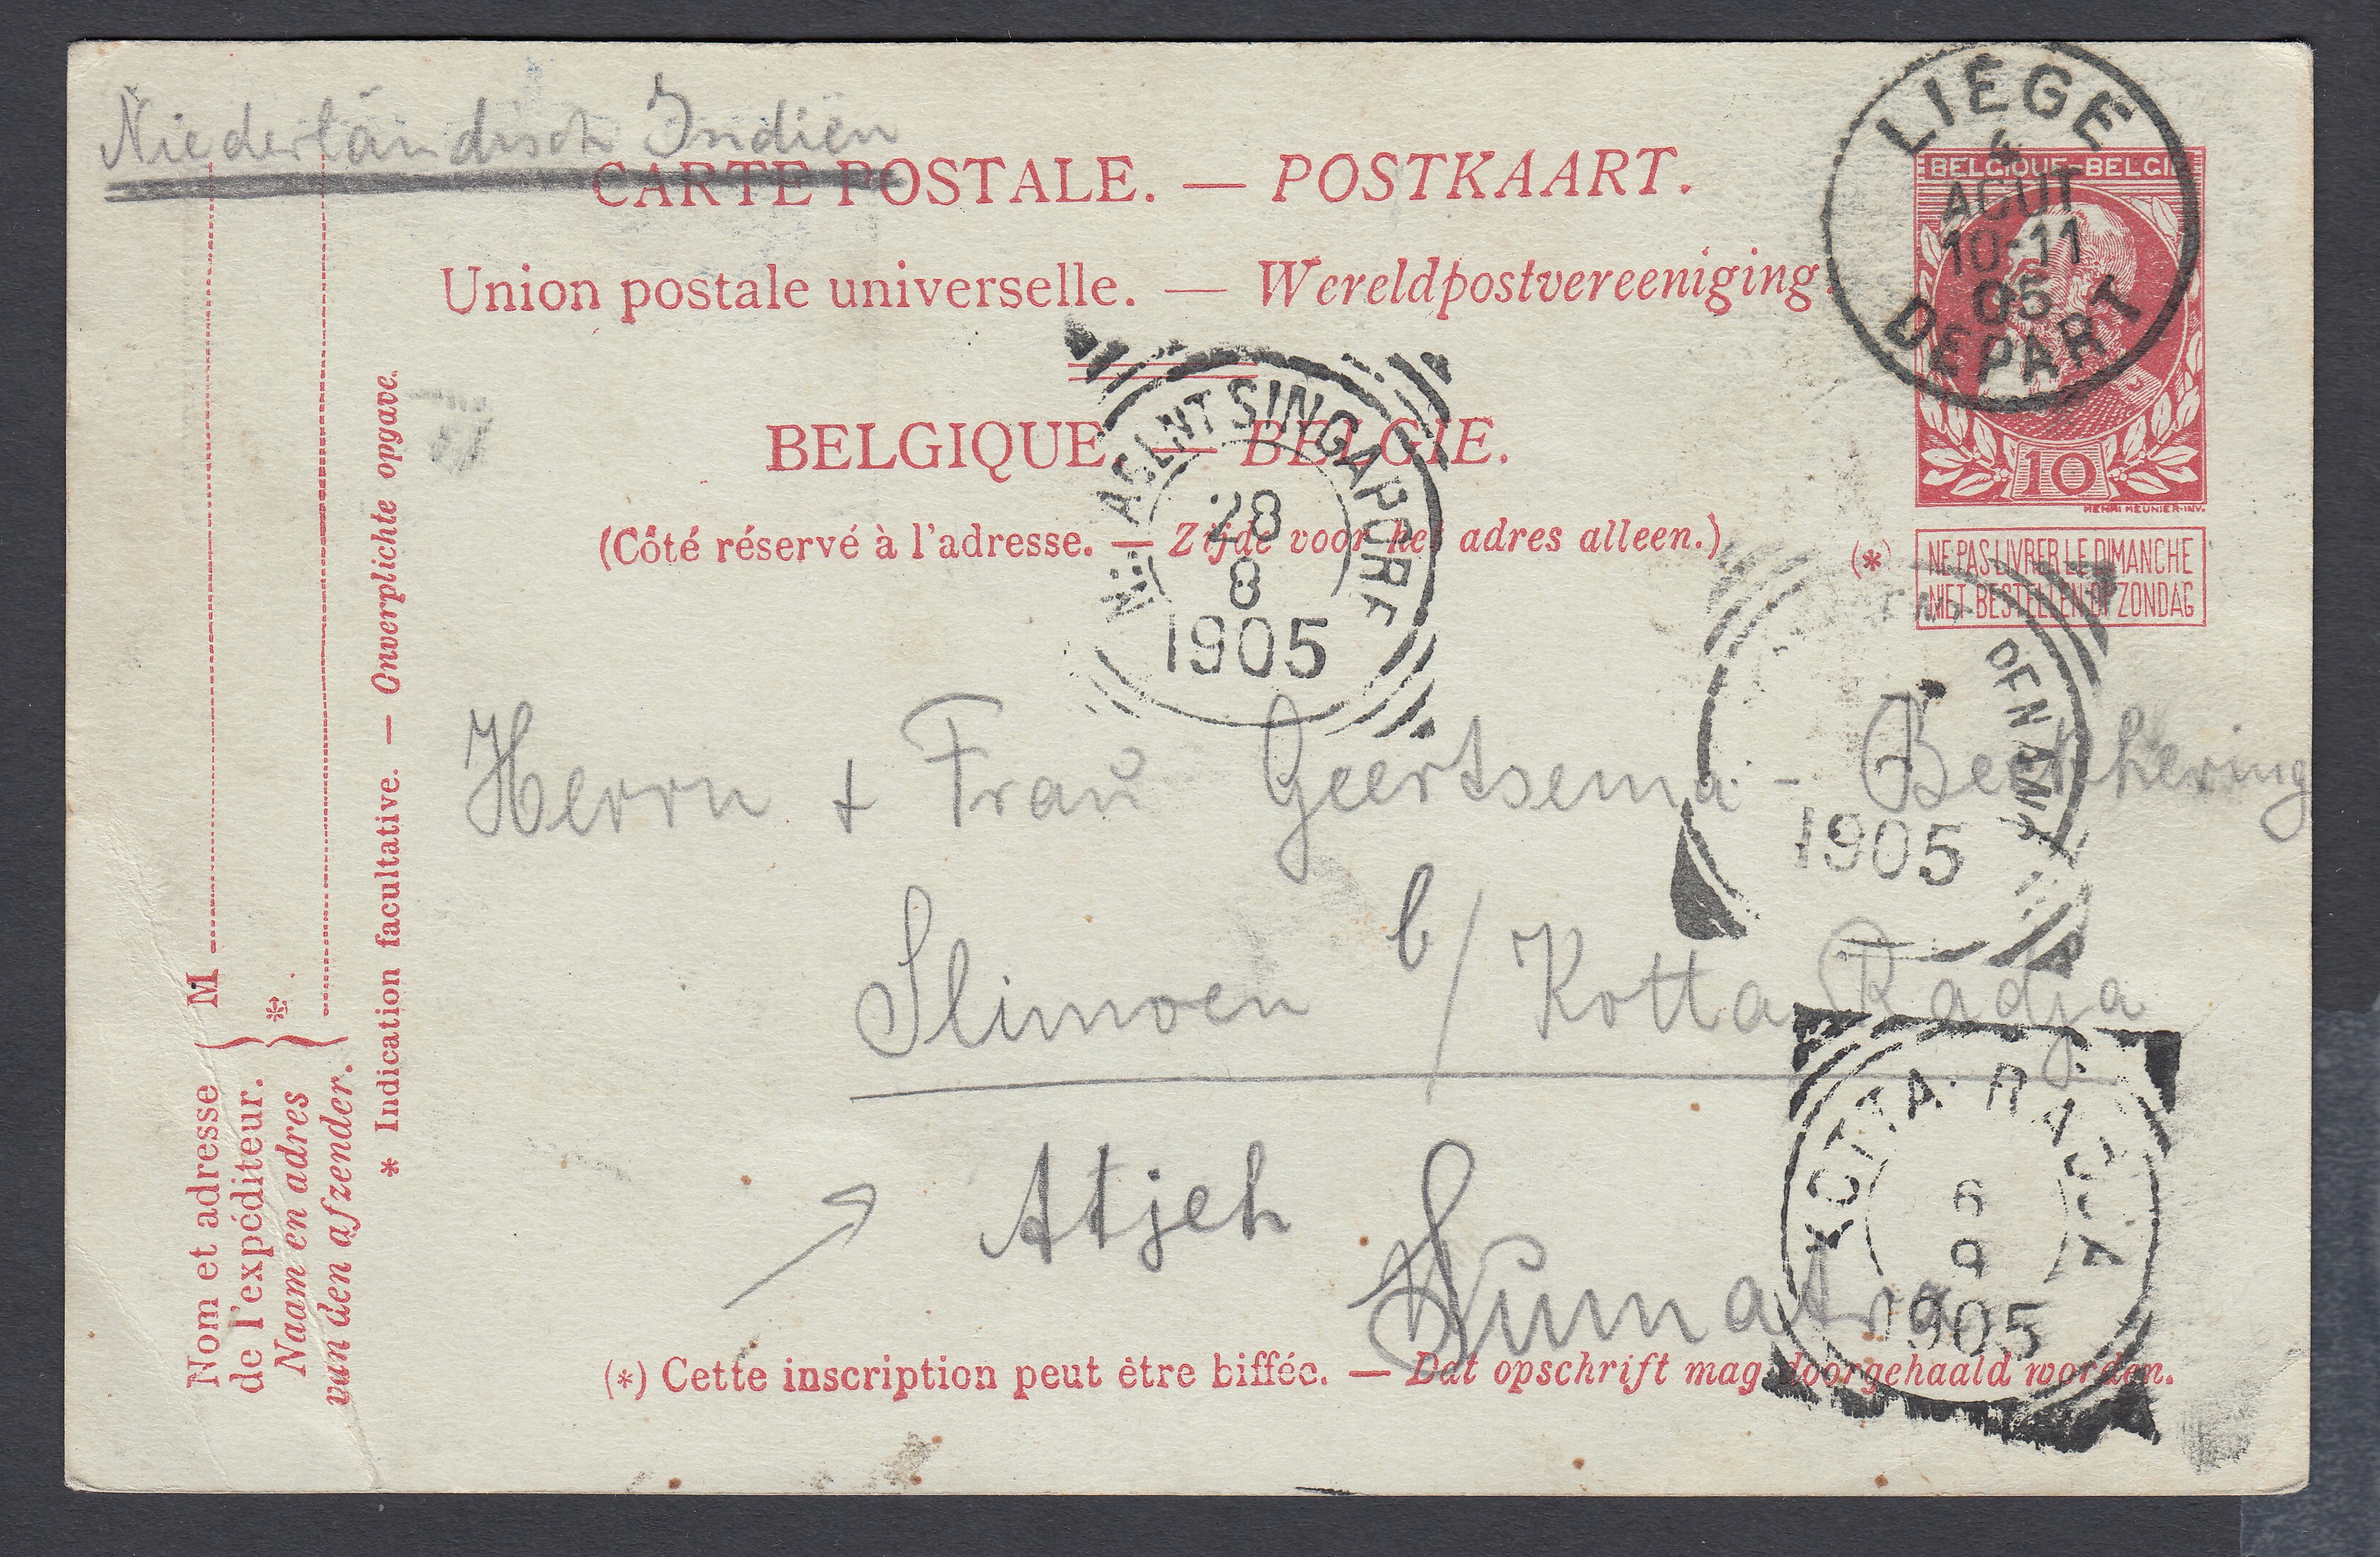 Niederländisch Indien
CARTE POSTALE. — POSTKAART.
Union postale universelle. — Wereldpostvereeniging.
BELGIQUE. — BELGIE.
(Côté réservé à l'adresse. — Zijde voor het adres alleen.)
LIEGE
4
AOUT
10-11
05
DEPART
BELGIQUE-BELGIE
10
HENRI MEUNIER-INV.
(*) NE PAS LIVRER LE DIMANCHE
NIET BESTELLEN OP ZONDAG
N.I. AGENT SINGAPORE
28
8
1905
1905
Herrn + Frau Geertsema -
Slimoen b/ Kotta Radja
Atjeh
Sumatra
KOTTA-RADJA
6
9
1905
(*) Cette inscription peut être biffée. — Dat opschrift mag doorgehaald worden.
Nom et adresse } M
de l'expéditeur.
Naam en adres } *
van den afzender.
* Indication facultative. — Onverplichte opgave.